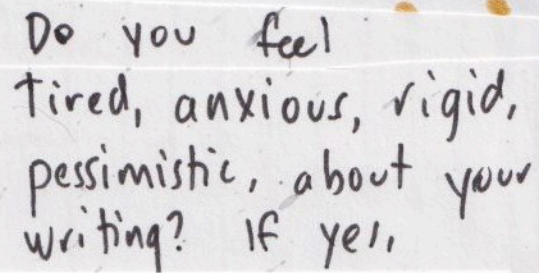 Do you feel
tired, anxious, rigid,
pessimistic, about your
writing? If yes,